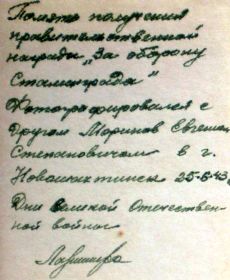 Память получения
правительственной
награды „За оборону
Сталинграда"
Фотографировался с
другом Маринов Евгением
Степановичем в г.
Новошахтинске 25-6-43
Дни великой Отечествен-
ной войны